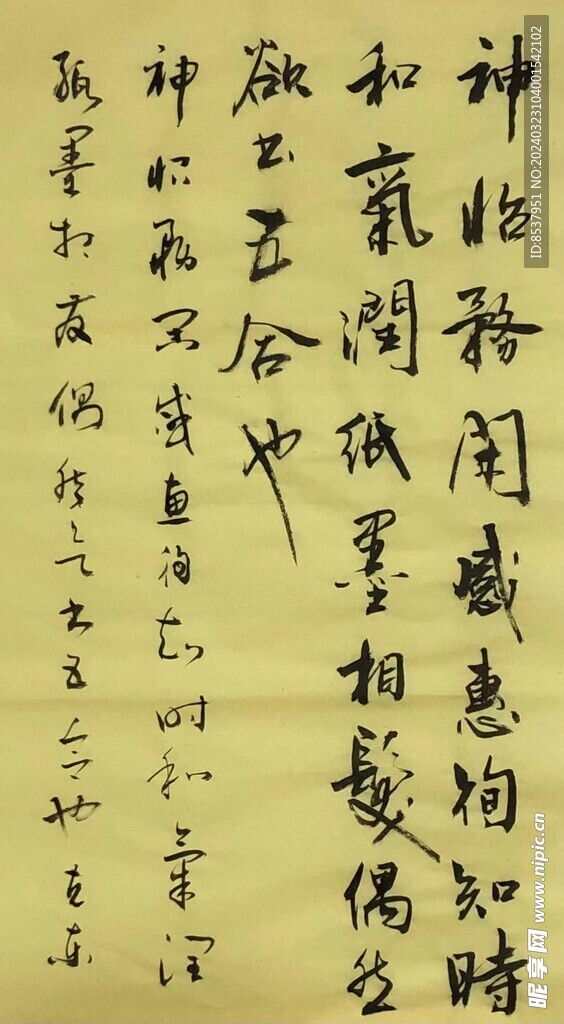 神怡務閑感惠徇知時
和氣潤紙墨相髮偶然
欲书五合也
神怡務闲感惠徇知时和氣润
纸墨相发偶然欲书五合也 克东
ID:8537951 NO:20240323104001542102
昵享网 www.nipic.cn